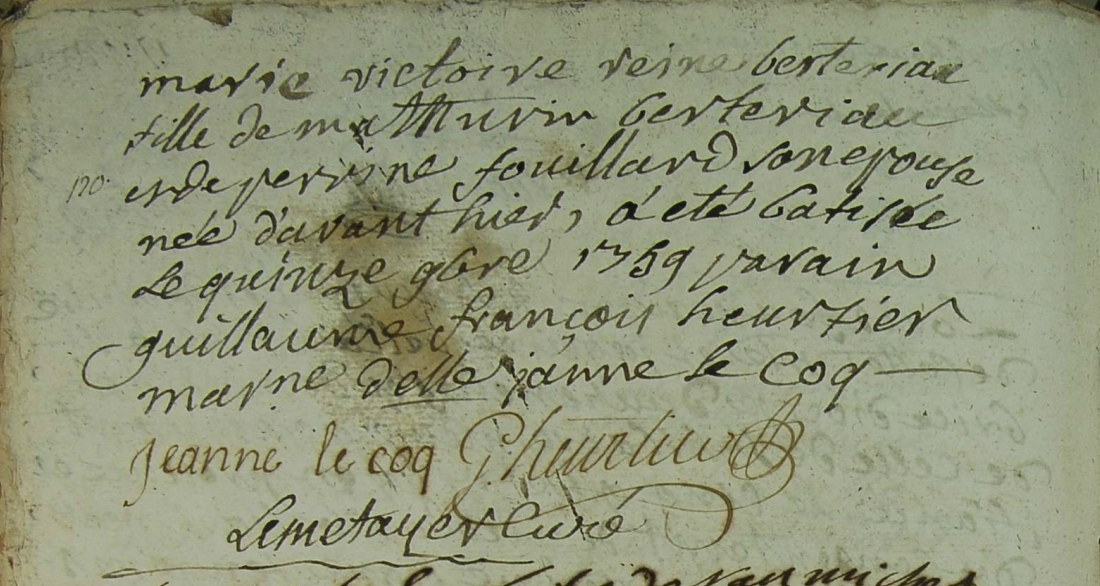 marie victoire reine berteriau
fille de mathurin berteriau
et de perrine fouillard son epouse
née d'avant hier, a eté batisée
le quinze 9bre 1759 parain
guillaume françois heurtier
marne delle janne le Coq
Jeanne le coq G heurtier
Lemetayer Curé